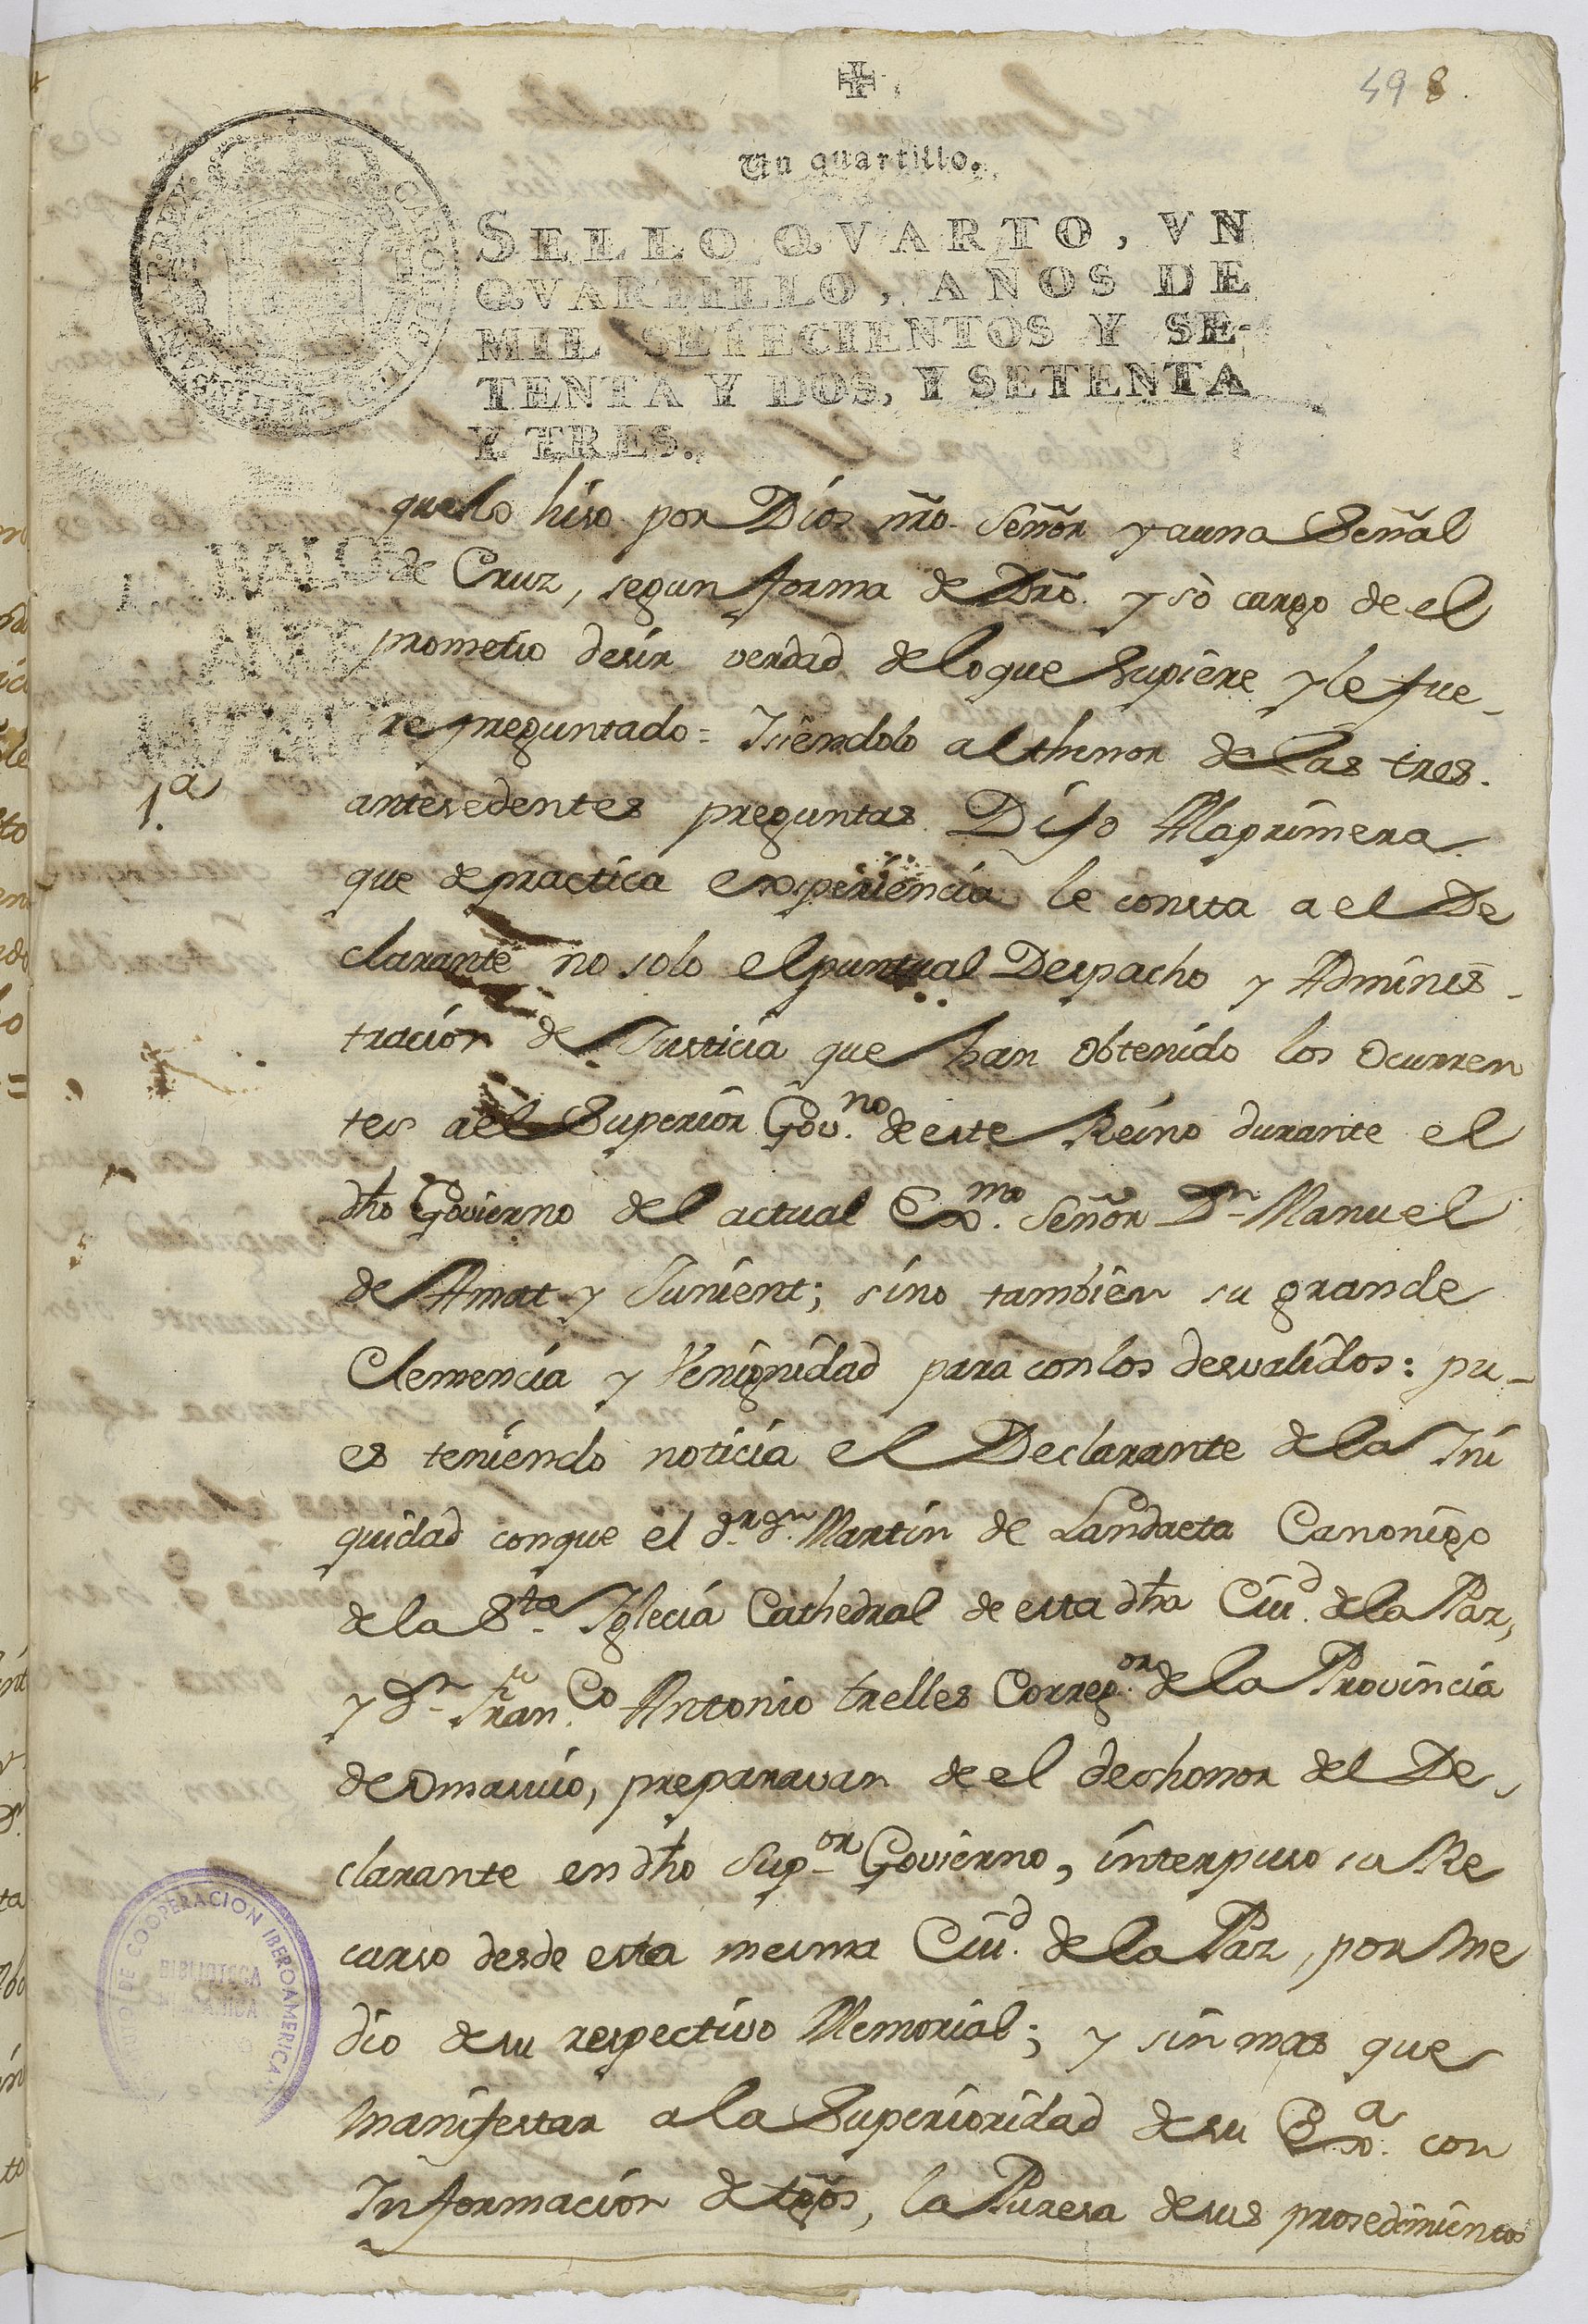 498.
Un quartillo.
SELLO QVARTO, VN
QVARTILLO, AÑOS DE
MIL SETECIENTOS Y SE-
TENTA Y DOS, Y SETENTA
Y TRES.
que lo hiso por Dios nr̃o Señor y a una Señal
de Cruz, segun forma de Dr̃o. y sò cargo de el
prometio desir verdad de lo que Supiere y le fue-
re preguntado = Isiendolo al thenor de las tres
1.a
antesedentes preguntas Dijo A la primera
que de practica experiencia le consta a el De
clarante no solo el puntual Despacho y Adminis-
tracion de Justicia que han obtenido los Ocurren
tes a el Superior Gov.no de este Reino durante el
dho Govierno del actual Exmo. Señor Dn Manuel
de Amat y Junient; sino tambien su grande
Clemencia y Venignidad para con los desvalidos: pu-
es teniendo noticia el Declarante de la Ini
quidad conque el Dr. Dn. Martin de Landaeta Canonigo
de la Sta Iglecia Cathedral de esta dha Ciud. de la Paz,
y Dn Fran.co Antonio trelles Correg.or de la Provincia
de Omasuio, preparavan de el deshonor del De-
clarante en dho Sup.or Govierno, interpuso su Re
curso desde esta mesma Ciud. de la Paz, por me
dio de su respectivo Memorial; y sin mas que
manifestar a la Superioridad de su Ex.a con
Informacion de tgõs, la Puresa de sus prosedimientos
DE COOPERACION IBEROAMERICA
BIBLIOTECA